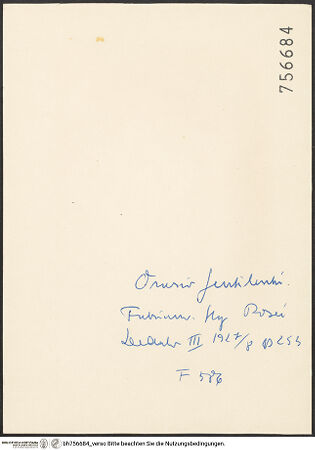 756684
Orazio Gentileschi.
Fabriano. Slg Rosei
Dedalo III 1927/8 p 253
F 586
bh756684_verso Bitte beachten Sie die Nutzungsbedingungen.